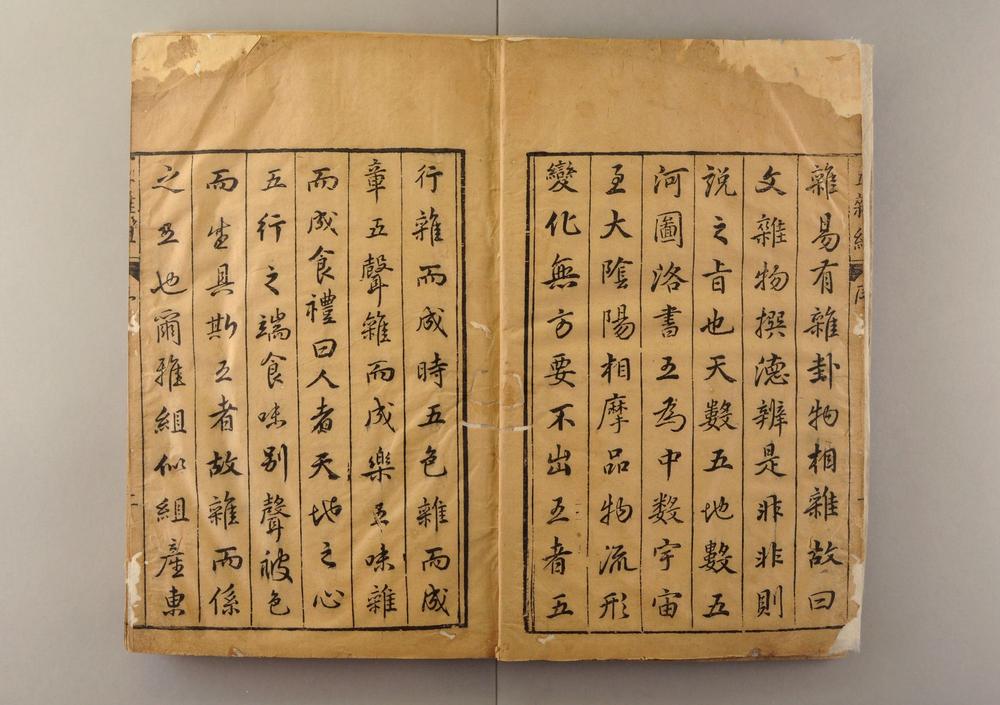 雜易有雜卦物相雜故曰
文雜物撰德辨是非非則
說之旨也天數五地數五
河圖洛書五為中数宇宙
至大陰陽相摩品物流形
變化無方要不出五者五
行雜而成時五色雜而成
章五聲雜而成樂五味雜
而成食禮曰人者天地之心
五行之端食味别聲被色
而生具斯五者故雜而係
之五也爾雅組似組產東